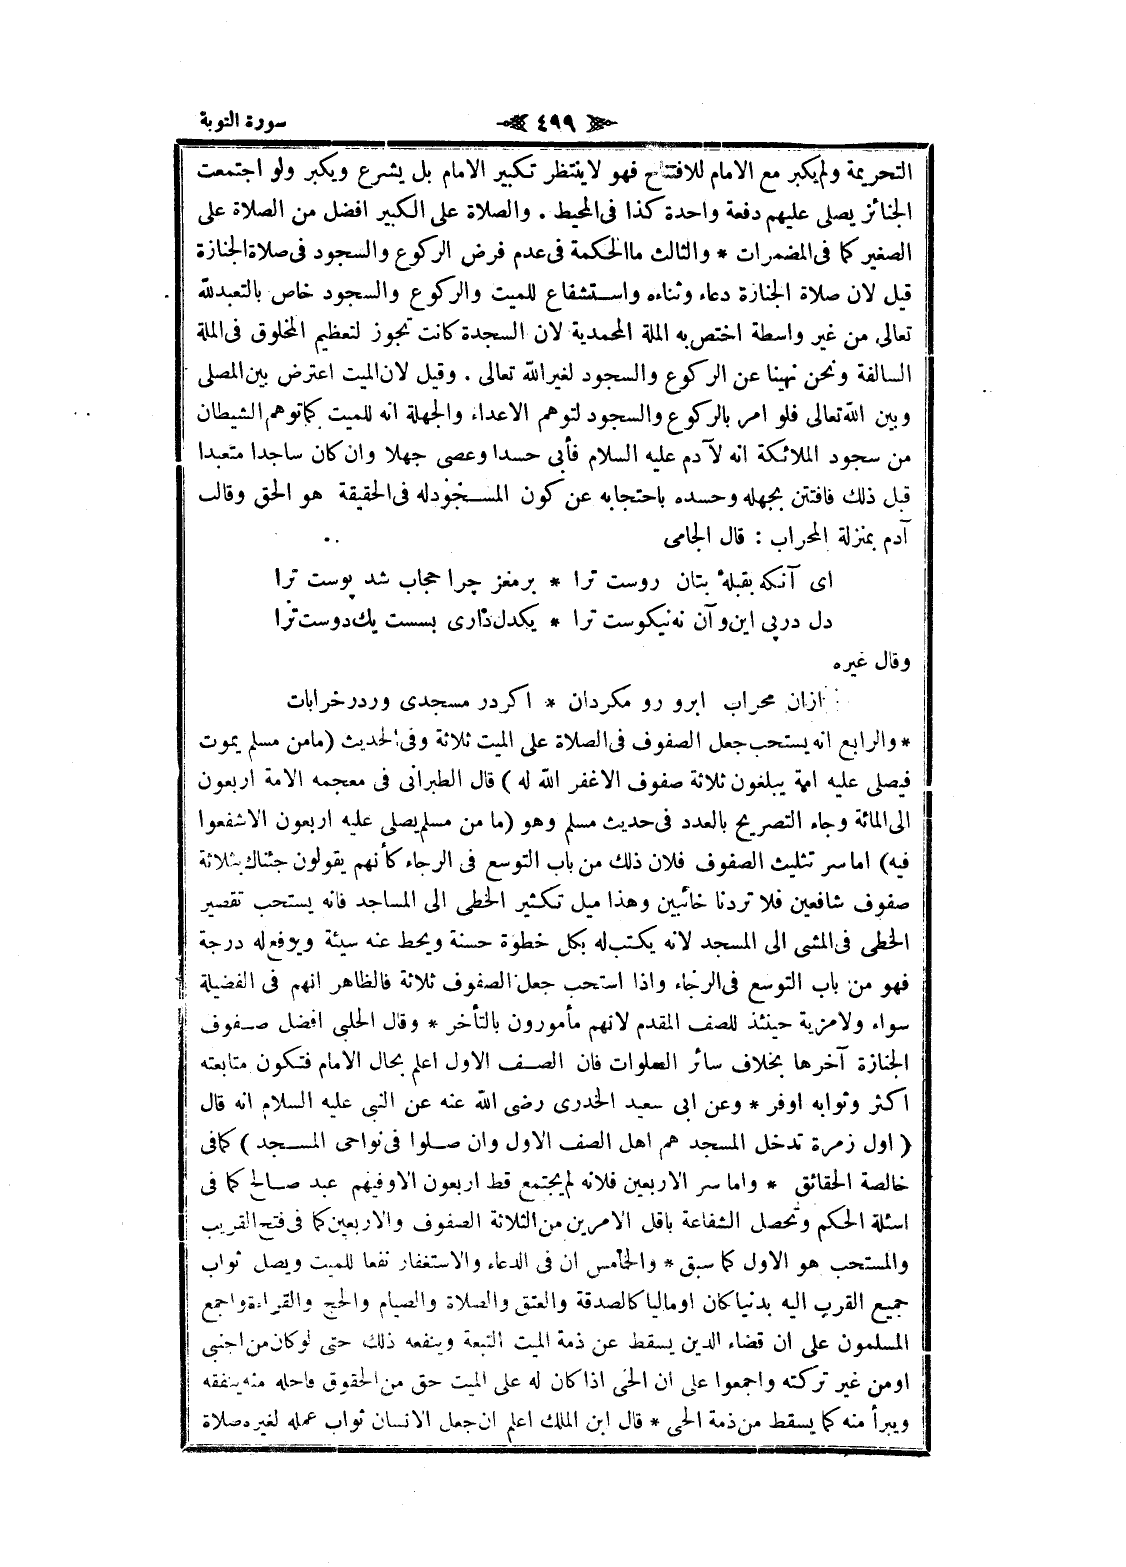 سورة التوبة
﴿ ٤٩٩ ﴾
التحريمة ولم يكبر مع الامام للافتتاح فهو لاينتظر تكبير الامام بل يشرع ويكبر ولو اجتمعت
الجنائز يصلى عليهم دفعة واحدة كذا فى المحيط . والصلاة على الكبير افضل من الصلاة على
الصغير كما فى المضمرات * والثالث ما الحكمة فى عدم فرض الركوع والسجود فى صلاة الجنازة
قيل لان صلاة الجنازة دعاء وثناء واستشفاع للميت والركوع والسجود خاص بالتعبد لله
تعالى من غير واسطة اختص به الملة المحمدية لان السجدة كانت تجوز لتعظيم المخلوق فى الملة
السالفة ونحن نهينا عن الركوع والسجود لغير الله تعالى . وقيل لان الميت اعترض بين المصلى
وبين الله تعالى فلو امر بالركوع والسجود لتوهم الاعداء والجهلة انه للميت كما توهم الشيطان
من سجود الملائكة انه لآدم عليه السلام فأبى حسدا وعصى جهلا وان كان ساجدا متعبدا
قبل ذلك فافتتن بجهله وحسده باحتجابه عن كون المسجودله فى الحقيقة هو الحق وقالب
آدم بمنزلة المحراب : قال الجامى
اى آنكه بقبلهٔ بتان روست ترا * برمغز چرا حجاب شد پوست ترا
دل درپى اين وآن نه نيكوست ترا * يكدل دارى بسست يك دوست ترا
وقال غيره
ازان محراب ابرو رو مكردان * اكر در مسجدى ور در خرابات
* والرابع انه يستحب جعل الصفوف فى الصلاة على الميت ثلاثة وفى الحديث (مامن مسلم يموت
فيصلى عليه امة يبلغون ثلاثة صفوف الاغفر الله له) قال الطبرانى فى معجمه الامة اربعون
الى المائة وجاء التصريح بالعدد فى حديث مسلم وهو (ما من مسلم يصلى عليه اربعون الاشفعوا
فيه) اما سر تثليث الصفوف فلان ذلك من باب التوسع فى الرجاء كأنهم يقولون جئناك بثلاثة
صفوف شافعين فلا تردنا خائبين وهذا ميل تكثير الخطى الى المساجد فانه يستحب تقصير
الخطى فى المشى الى المسجد لانه يكتب له بكل خطوة حسنة ويحط عنه سيئة ويرفع له درجة
فهو من باب التوسع فى الرجاء واذا استحب جعل الصفوف ثلاثة فالظاهر انهم فى الفضيلة
سواء ولامزية حينئذ للصف المقدم لانهم مأمورون بالتأخر * وقال الحلبى افضل صفوف
الجنازة آخرها بخلاف سائر الصلوات فان الصف الاول اعلم بحال الامام فتكون متابعته
اكثر وثوابه اوفر * وعن ابى سعيد الخدرى رضى الله عنه عن النبى عليه السلام انه قال
( اول زمرة تدخل المسجد هم اهل الصف الاول وان صلوا فى نواحى المسجد ) كما فى
خالصة الحقائق * واما سر الاربعين فلانه لم يجتمع قط اربعون الا وفيهم عبد صالح كما فى
اسئلة الحكم وتحصل الشفاعة باقل الامرين من الثلاثة الصفوف والاربعين كما فى فتح القريب
والمستحب هو الاول كما سبق * والخامس ان فى الدعاء والاستغفار نفعا للميت ويصل ثواب
جميع القرب اليه بدنيا كان اوماليا كالصدقة والعتق والصلاة والصيام والحج والقراءة واجمع
المسلمون على ان قضاء الدين يسقط عن ذمة الميت التبعة وينفعه ذلك حتى لوكان من اجنبى
اومن غير تركته واجمعوا على ان الحى اذا كان له على الميت حق من الحقوق فاحله منه ينفقه
ويبرأ منه كما يسقط من ذمة الحى * قال ابن الملك اعلم ان جعل الانسان ثواب عمله لغيره صلاة